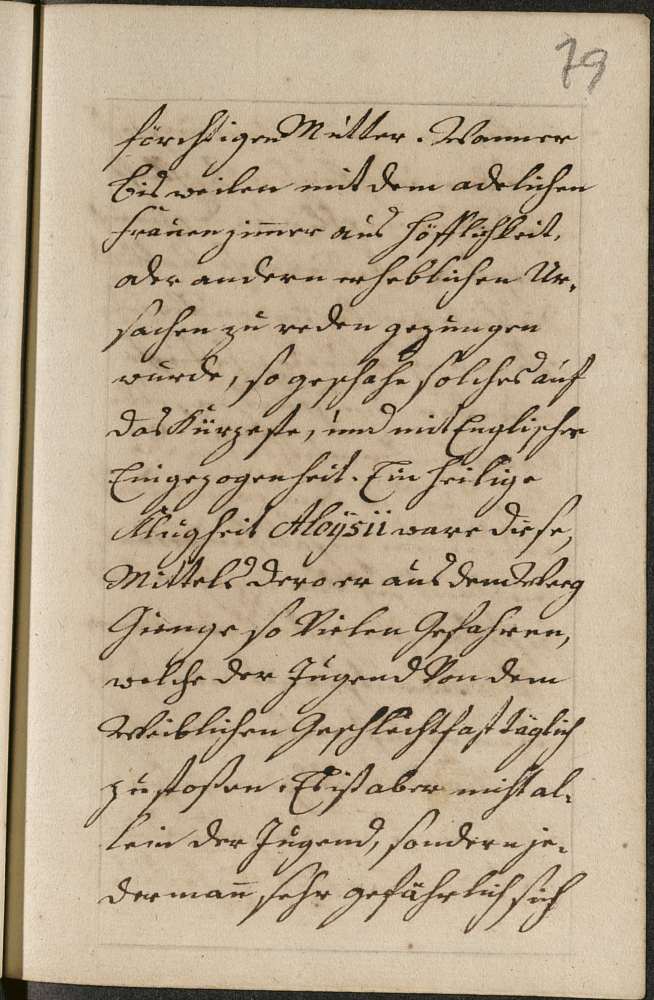 79
förchtigen Mutter. Wan er
bisweilen mit dem adelichen
Frauenzimmer aus Höfflichkeit,
oder andern erheblichen Ur-
sachen zu reden gezungen
wurde, so geschahe solches auf
das Kürzeste, und mit Englischer
Eingezogenheit. Ein heilige
Klugheit Aloÿsii ware diese,
Mittels dero er aus dem Weeg
Gienge so Vielen Gefahren,
welche der Jugend Von dem
Weiblichen Geschlecht fast täglich
zustossen. Es ist aber nicht al-
lein der Jugend, sondern je-
dermann sehr gefährlich sich